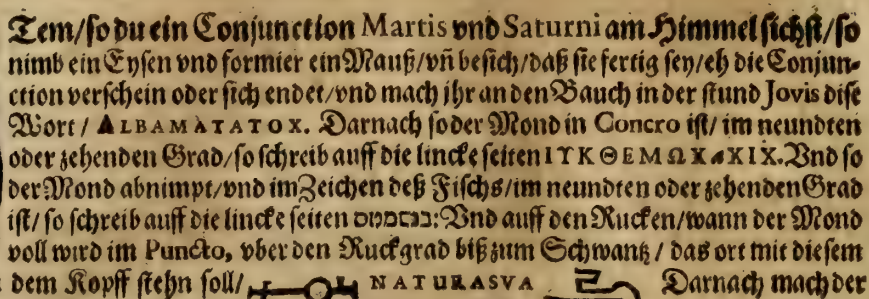 Tem/ so du ein Conjunction Martis vnd Saturni am Himmel sichst/ so
nimb ein Eysen vnd formier ein Mauß/ vñ besich/ daß sie fertig sey/ eh die Conjun-
ction verschein oder sich endet/ vnd mach jhr an den Bauch in der stund Jovis dise
Wort / ALBAMATATOX. Darnach so der Mond in Concro ist/ im neundten
oder zehenden Grad/ so schreib auff die lincke seiten IΤΚΘΕΜΩX XIX. Vnd so
der Mond abnimpt/ vnd im Zeichen deß Fischs/ im neundten oder zehenden Grad
ist/ so schreib auff die lincke seiten Vnd auff den Rucken/ wann der Mond
voll wird im Puncto, vber den Ruckgrad biß zum Schwantz / das ort mit diesem
dem Kopff stehn soll/ NATURASVA Darnach mach der